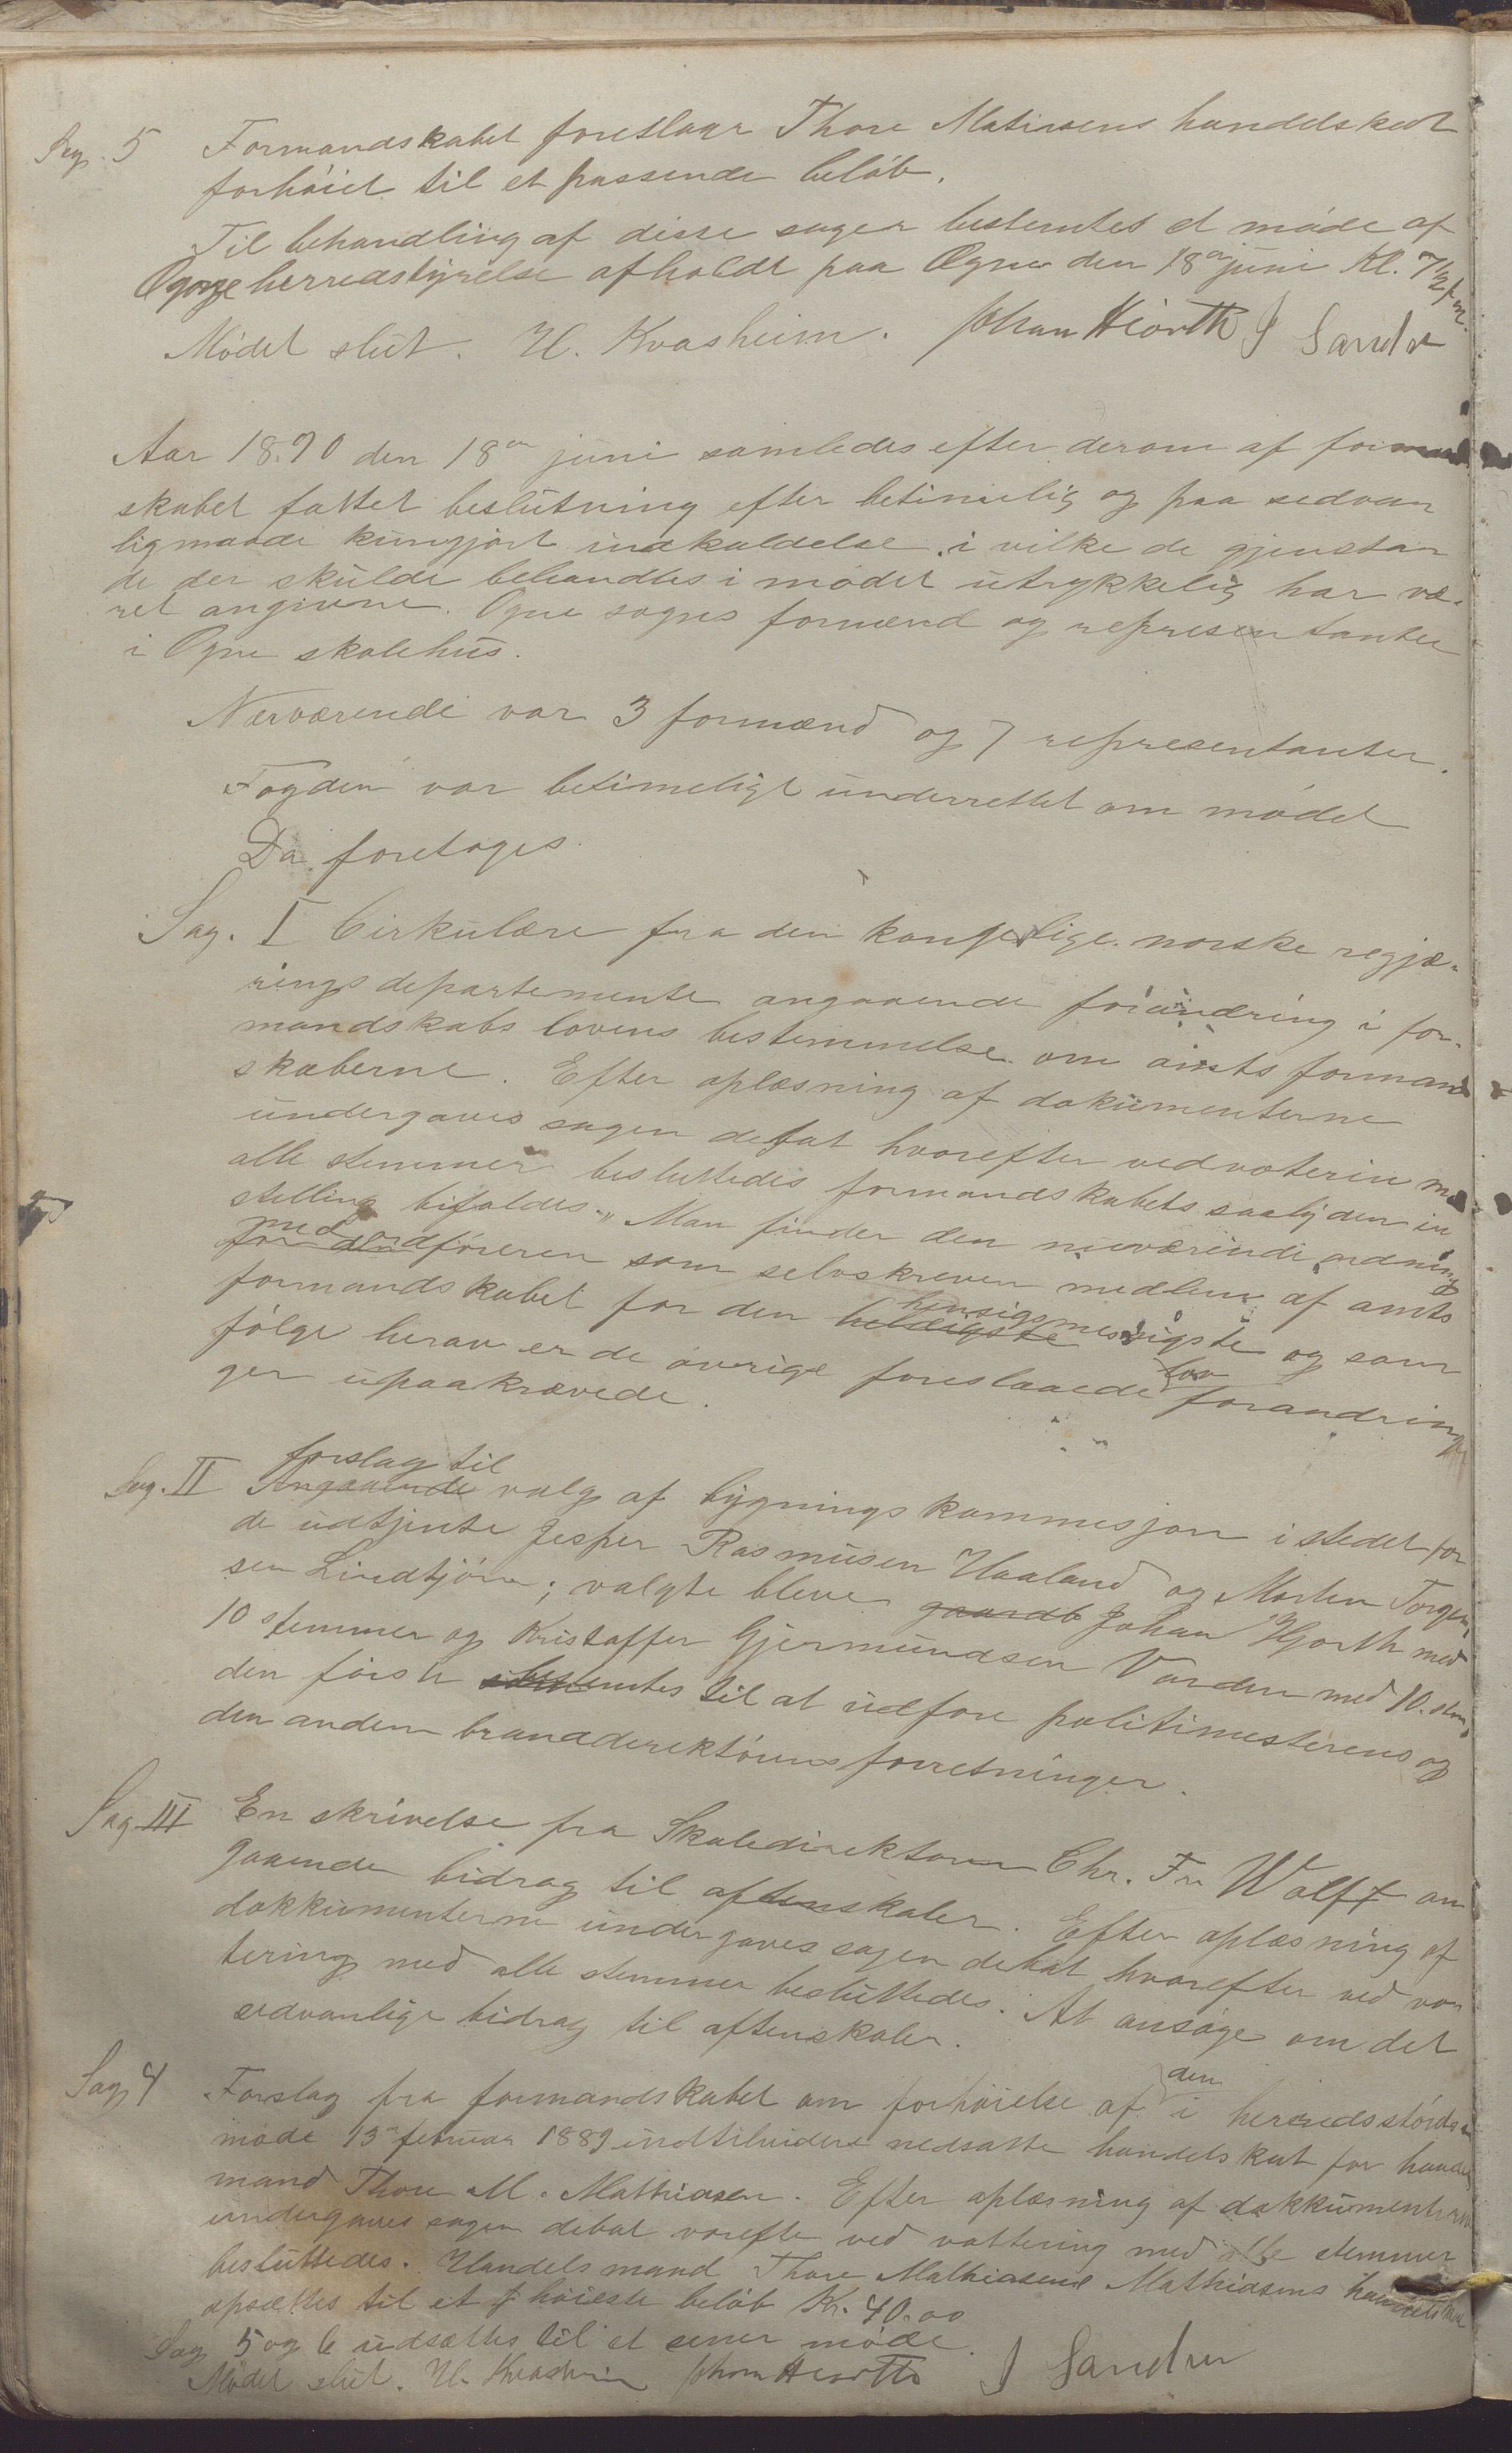 Sag. 5 Formandskabet foreslaar Thore Matiasens handelskat
forhöiet til et passende belöb.
Til behandling af disse sager bestemtes et möde af
Ogne herredstyrelse afholdt paa Ogne den 18de juni Kl. 7½ f.m.
Mödet slut. H. Kvasheim. Johan Hiorth J Sandve
Aar 1890 den 18de juni samledes efter derom af formand
skabet fattet beslutning efter betimelig og paa sedvan
lig maade kungjort indkaldelse, i vilke de gjenstan
de der skulde behandles i mödet utrykkelig har væ-
ret angivne. Ogne sogns formænd og representanter
i Ogne skolehus.
Nærværende var 3 formænd og 7 representanter.
Fogden var betimeligt underrettet om mödet
Da foretoges.
Sag. I Cirkulære fra den kongelige norske regjæ-
rings departemente angaaende forandring i for-
mandskabs lovens bestemmelse om amts formand
skaberne. Efter oplæsning af dokumenterne
undergaves sagen debat hvorefter ved votering med
alle stemmer besluttedes formandskabets saalyden in
stilling bifaldes. "Man finder den nuværende ordning
for den med ordföreren som selvskreven medlem af amts
formandskabet for den heldigste hensigsmessigste og som
fölge herav er de övrige foreslaaede lov forandrin
ger upaakrævede.
Sag. II Angaaende forslag til valg af bygnings kommesjon i stedet for
de udtjente Jesper Rasmusen Haaland og Morten Torger
sen Lindtjörn; valgte bleve gaardb Johan Hjorth med
10 stemmer og Kristoffer Gjermundsen Varden med 10 stm.
den förste bestemtes til at udföre politimesterens og
den anden branddirektörens forretninger.
Sag III En skrivelse fra Skoledirektören Chr. Fr Wolff an
gaaende bidrag til aftenskoler. Efter oplæsning af
dokkumenterne undergaves sagen debat hvorefter ved vo
tering med alle stemmer besluttedes: At ansöge om det
sedvanlige bidrag til aftenskoler.
Sag 4 Forslag fra formandskabet om forhöielse af den i herreds
möde 13de februar 1889 indtilvidere nedsatte handelskat for handels
mand Thore M. Mathiasen. Efter oplæsning af dokkumenterne
undergaves sagen debat vorefter ved vottering med alle stemmer
besluttedes. Handelsmand Thore Mathiasens Mathiasens handelskat
opsættes til et höieste belöb Kr. 40.00
Sag 5 og 6 udsættes til et sener möde.
Mödet slut. H. Kvasheim Johan Hiorth J Sandve